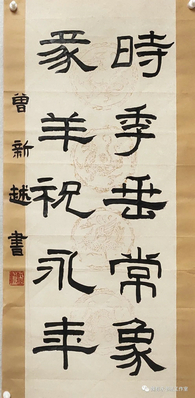 時季垂常象
羊祝永年
曾新越書